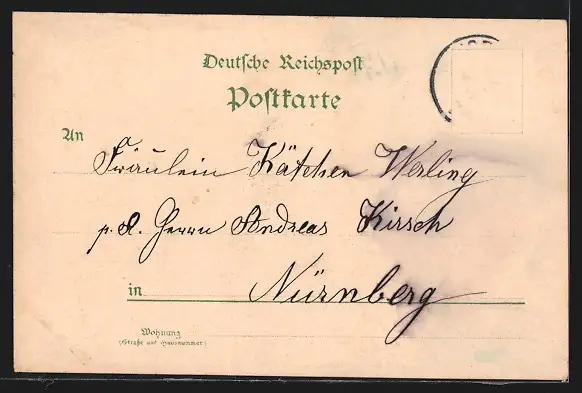 Deutsche Reichspost
Postkarte
An
Fräulein Kätchen Werling
p. A. Herrn Andreas Kirsch
in Nürnberg
Wohnung
(Straße und Hausnummer)